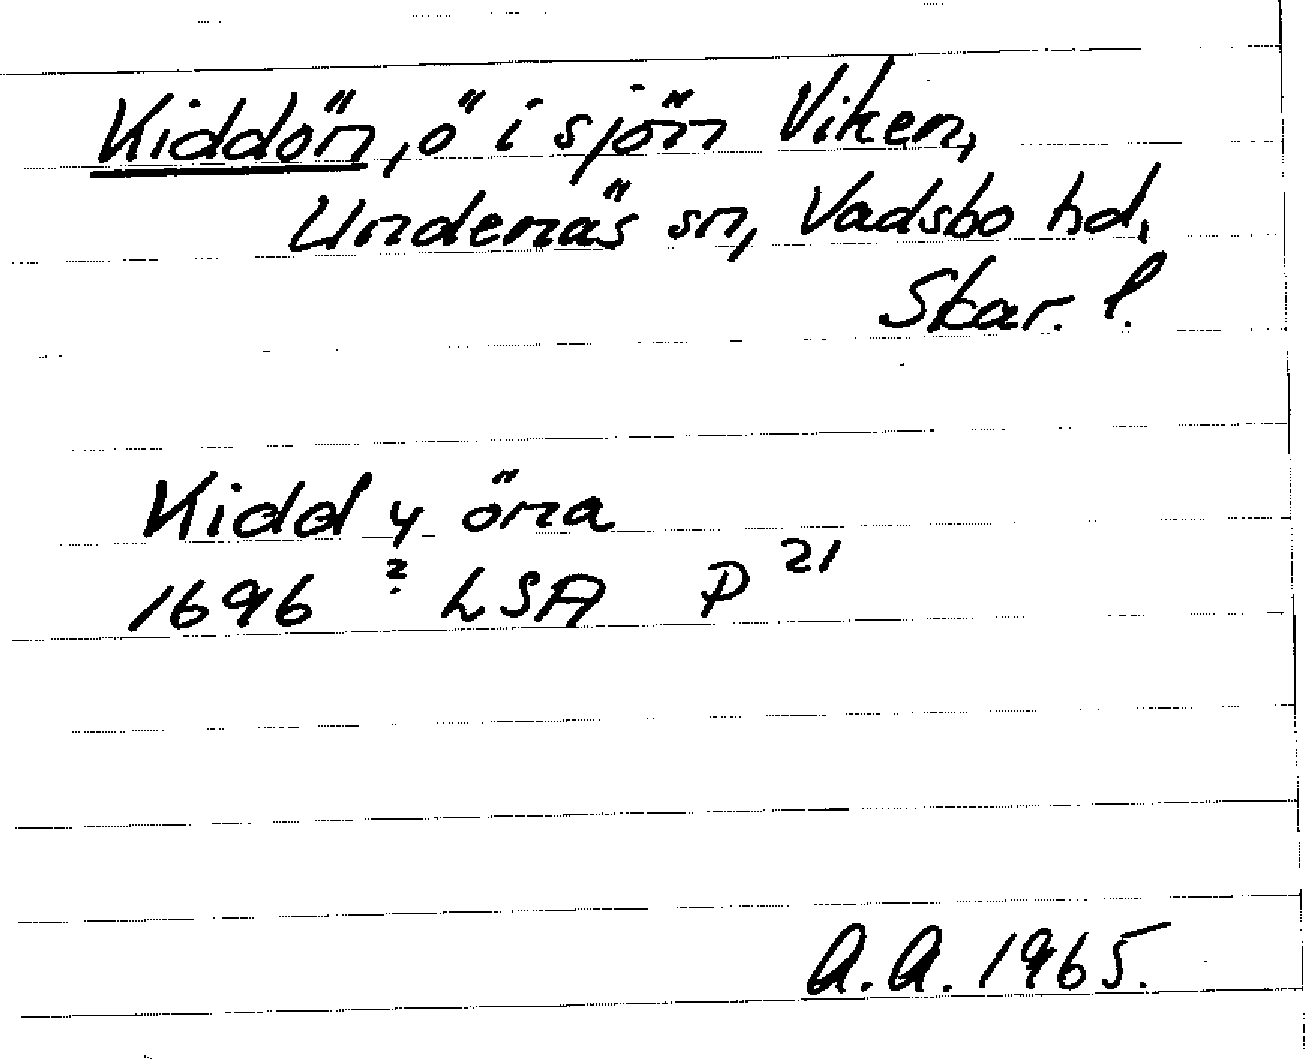 Kiddön, ö i sjön Viken,
Undenäs sn, Vadsbo hd,
Skar. l.
Kidd y öna
1696 ? LSA P 21
A.A. 1965.